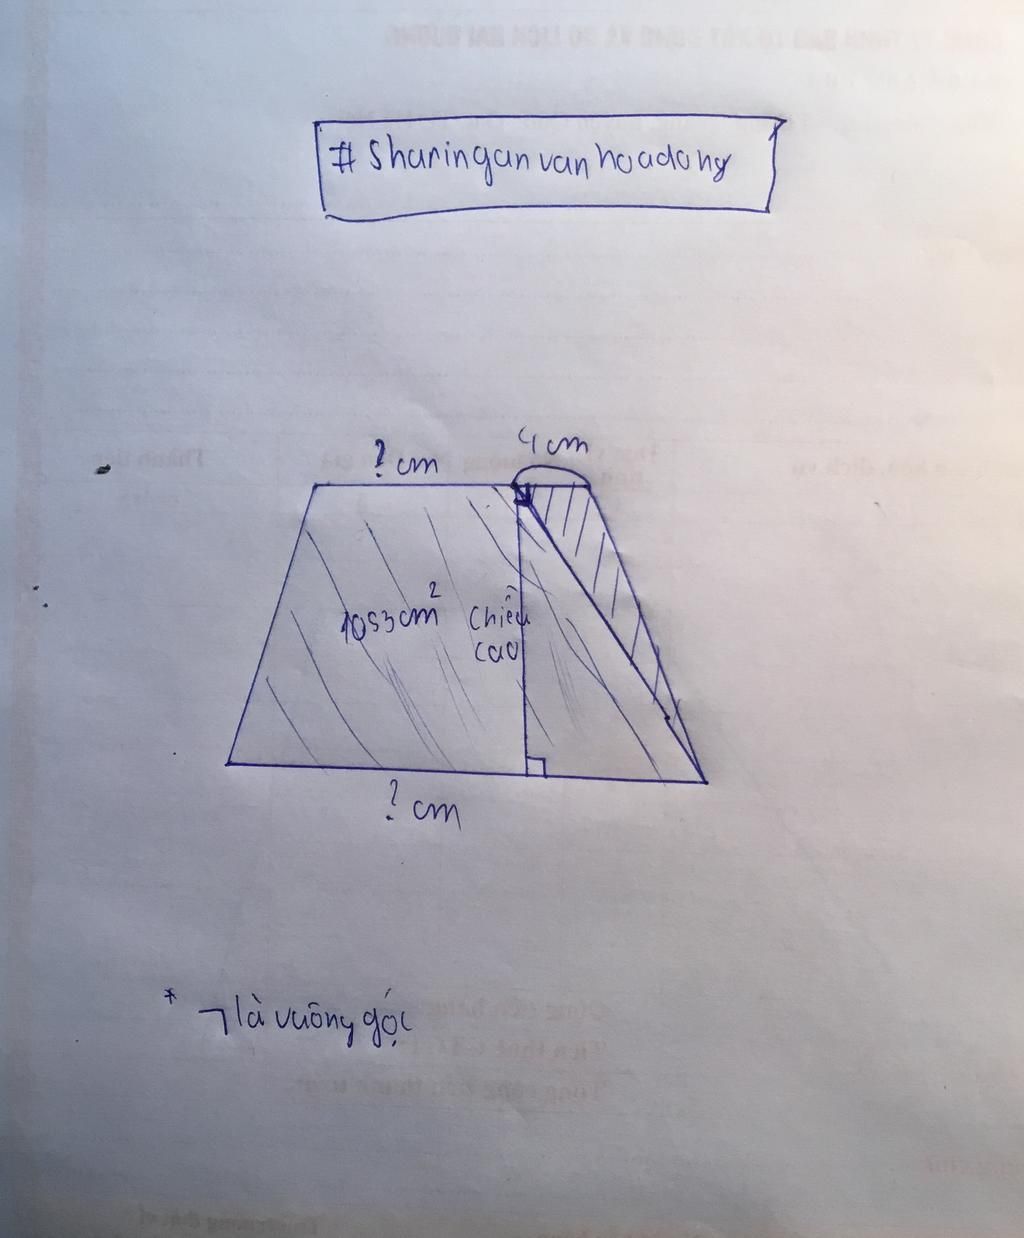 # Sharinganvanhoadong
? cm
4 cm
1053cm²
Chiều
cao
? cm
* ¬ là vuông góc